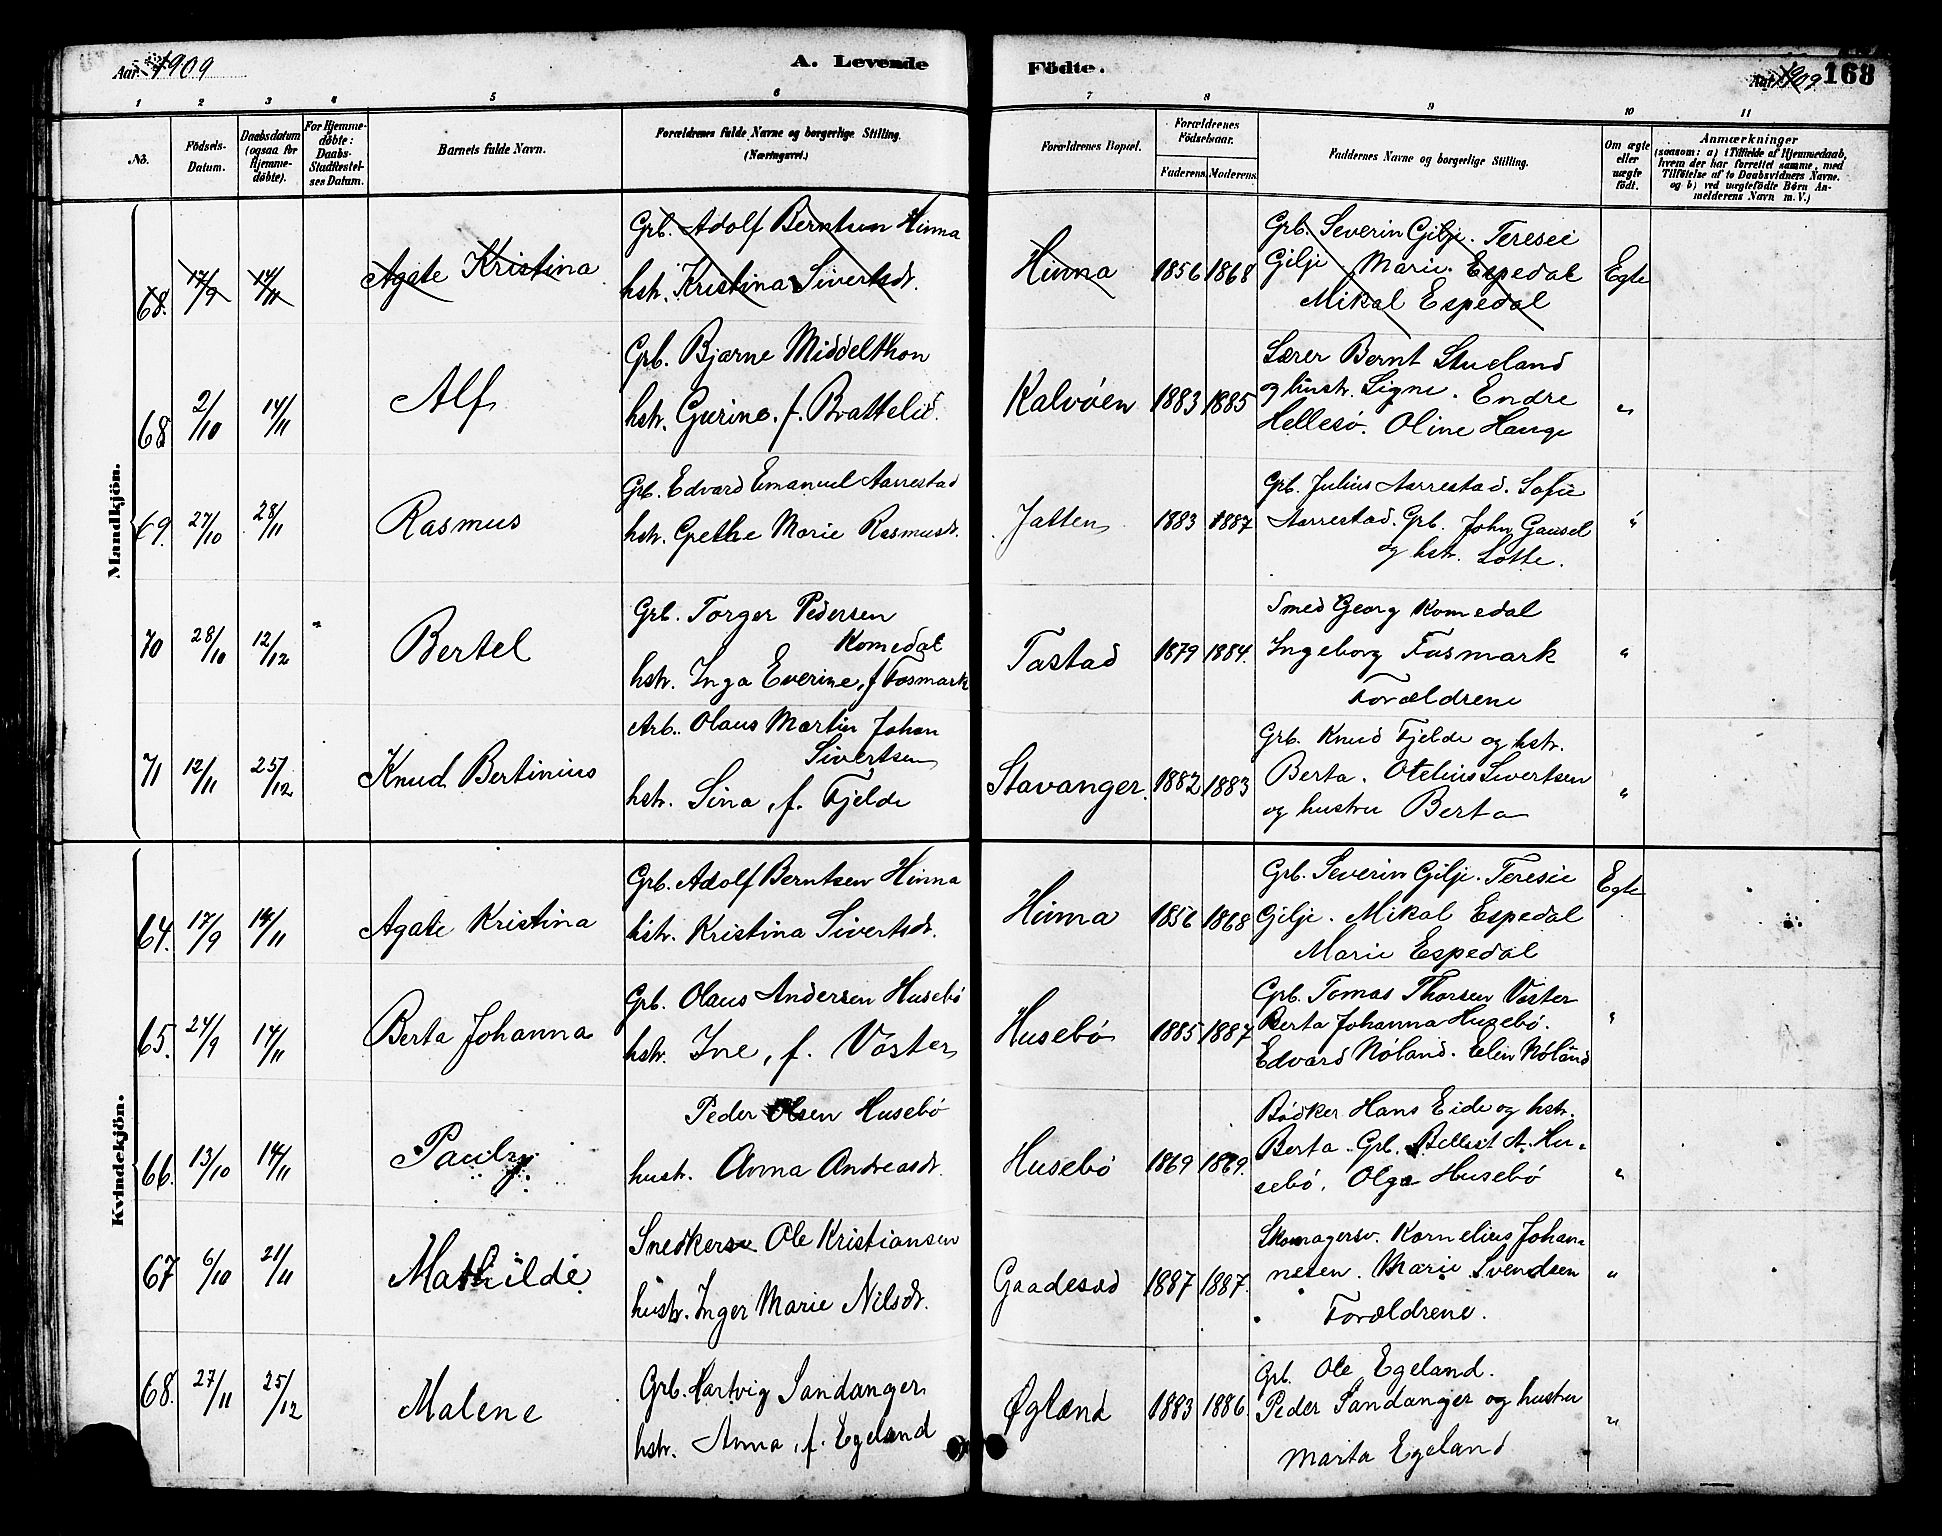 Aar 1909
A. Levende
Födte.
Aar 1909
168
1 2 3 4 5 6 7 8 9 10 11
No.
Födsels-Datum.
Daabsdatum (ogsaa for Hjemme-döbte).
For Hjemme-döbte: Daabs-Stadfæstel-ses Datum.
Barnets fulde Navn.
Forældrenes fulde Navne og borgerlige Stilling. (Næringsvei.)
Forældrenes Bopæl.
Forældrenes Födselsaar.
Faderens. Moderens.
Faddernes Navne og borgerlige Stilling.
Om ægte eller uægte födt.
Anmærkninger
(saasom: a) i Tilfælde af Hjemmedaab,
hvem der har forrettet samme, med
Tilföielse af to Daabsvidners Navne.
og b) ved uægtefödte Börn An-
melderens Navn m. V.)
Mandkjön.
68. 17/9 14/11 Agate Kristina
Grb. Adolf Berntsen Hinna
hstr. Kristina Sivertsdr.
Hinna 1856 1868
Grb. Severin Gilje. Teresie
Gilje Marie Espedal
Mikal Espedal
Egte
68 2/10 14/11 Alf
Grb. Bjarne Middelthon
hstr. Gurine. f. Brattelid.
Kalvøen 1883 1885
Lærer Bernt Stueland
og hustr. Signe. Endre
Hellesø. Oline Hauge
"
69. 27/10 28/11 Rasmus
Grb. Edvard Emanuel Aarrestad
hstr. Grethe Marie Rasmusdr.
Jatten 1883 1887
Grb. Julius Aarrestad. Sofie
Aarrestad. Grb. John Gausel
og hstr. Lotte.
"
70 28/10 12/12 Bertel
Grb. Torger Pedersen
Komedal
hstr. Inga Everine, f Fosmark
Tastad 1879 1884.
Smed Georg Komedal
Ingeborg Fosmark
Forældrene
"
71 12/11 25/12 Knud Bertinius
Arb. Olaus Martin Johan
Sivertsen
hstr. Sina, f. Fjelde
Stavanger. 1882 1883
Grb. Knud Fjelde og hstr.
Berta. Otelius Sivertsen
og hustru Berta
"
Kvindekjön.
64. 17/9 14/11 Agate Kristina
Grb. Adolf Berntsen Hinna
hstr. Kristina Sivertsdr.
Hinna 1856 1868
Grb. Severin Gilje. Teresie
Gilje. Mikal Espedal
Marie Espedal
Egte
65. 24/9 14/11 Berta Johanna
Grb. Olaus Andersen Husebö
hstr. Ine, f. Vaster
Husebö 1885 1887
Grb. Tomas Thorsen Vaster
Berta Johanna Husebö.
Edvard Nöland. Elin Nöland
"
66. 13/10 14/11 Pauly
Peder Olsen Husebö
hustr. Anna Andreasdr.
Husebö 1869 1869.
Bödker Hans Eide og hstr.
Berta. Grb. A. Hu-
sebö. Olga Husebö
"
67 6/10 21/11 Mathilde
Snedkersv Ole Kristiansen
hustr. Inger Marie Nilsdr.
Gaadesad 1887 1887.
Skomagersv. Kornelius Johan-
nesen. Marie Svendsen
Forældrene.
"
68. 27/11 25/12 Malene
Grb. Hartvig Sandanger
hstr. Anna, f. Egeland
Øgland 1883 1886.
Grb. Ole Egeland.
Peder Sandanger og hustru
Marta Egeland
"